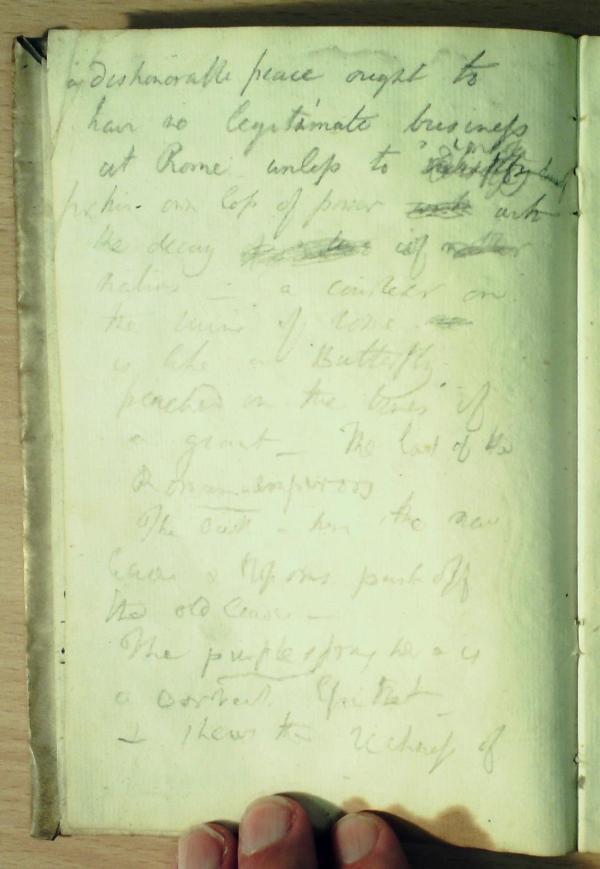 a dishonorable peace ought to
have no legitimate business
at Rome unless to
his own loss of power with
the decay of
nations — a courtier on
the ruins of Rome
is like a Butterfly
perched on the bones of
a giant — The last of the
Roman emperors
The oak — how the new
leaves & tips push off
the old leaves —
The purple spray here is
a correct Epithet
& shews the richness of